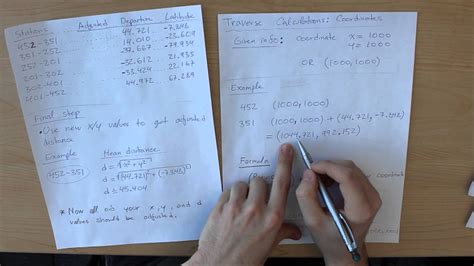 Stations Adjusted Departure Latitude
452-351 44.721 -7.242
351-252 14.010 -9.234
252-201 -37.667 -79.934
201-302 -32.612 21.935
302-401 -33.424 22.167
401-452 44.972 67.289
Final step
• Use new x/y values to get adjusted
distance
Example Mean distance
452-351 d = √x² + y²
d = √(44.721)² + (-7.242)²
d = 45.404
* Now all of your x, y, and d
values should be adjusted.
Traverse Calculations: Coordinates
Given info: Coordinate x = 1000
y = 1000
OR (1000, 1000)
Example
452 (1000, 1000)
351 (1000, 1000) + (44.721, -7.242)
= (1044.721, 992.152)
Formula